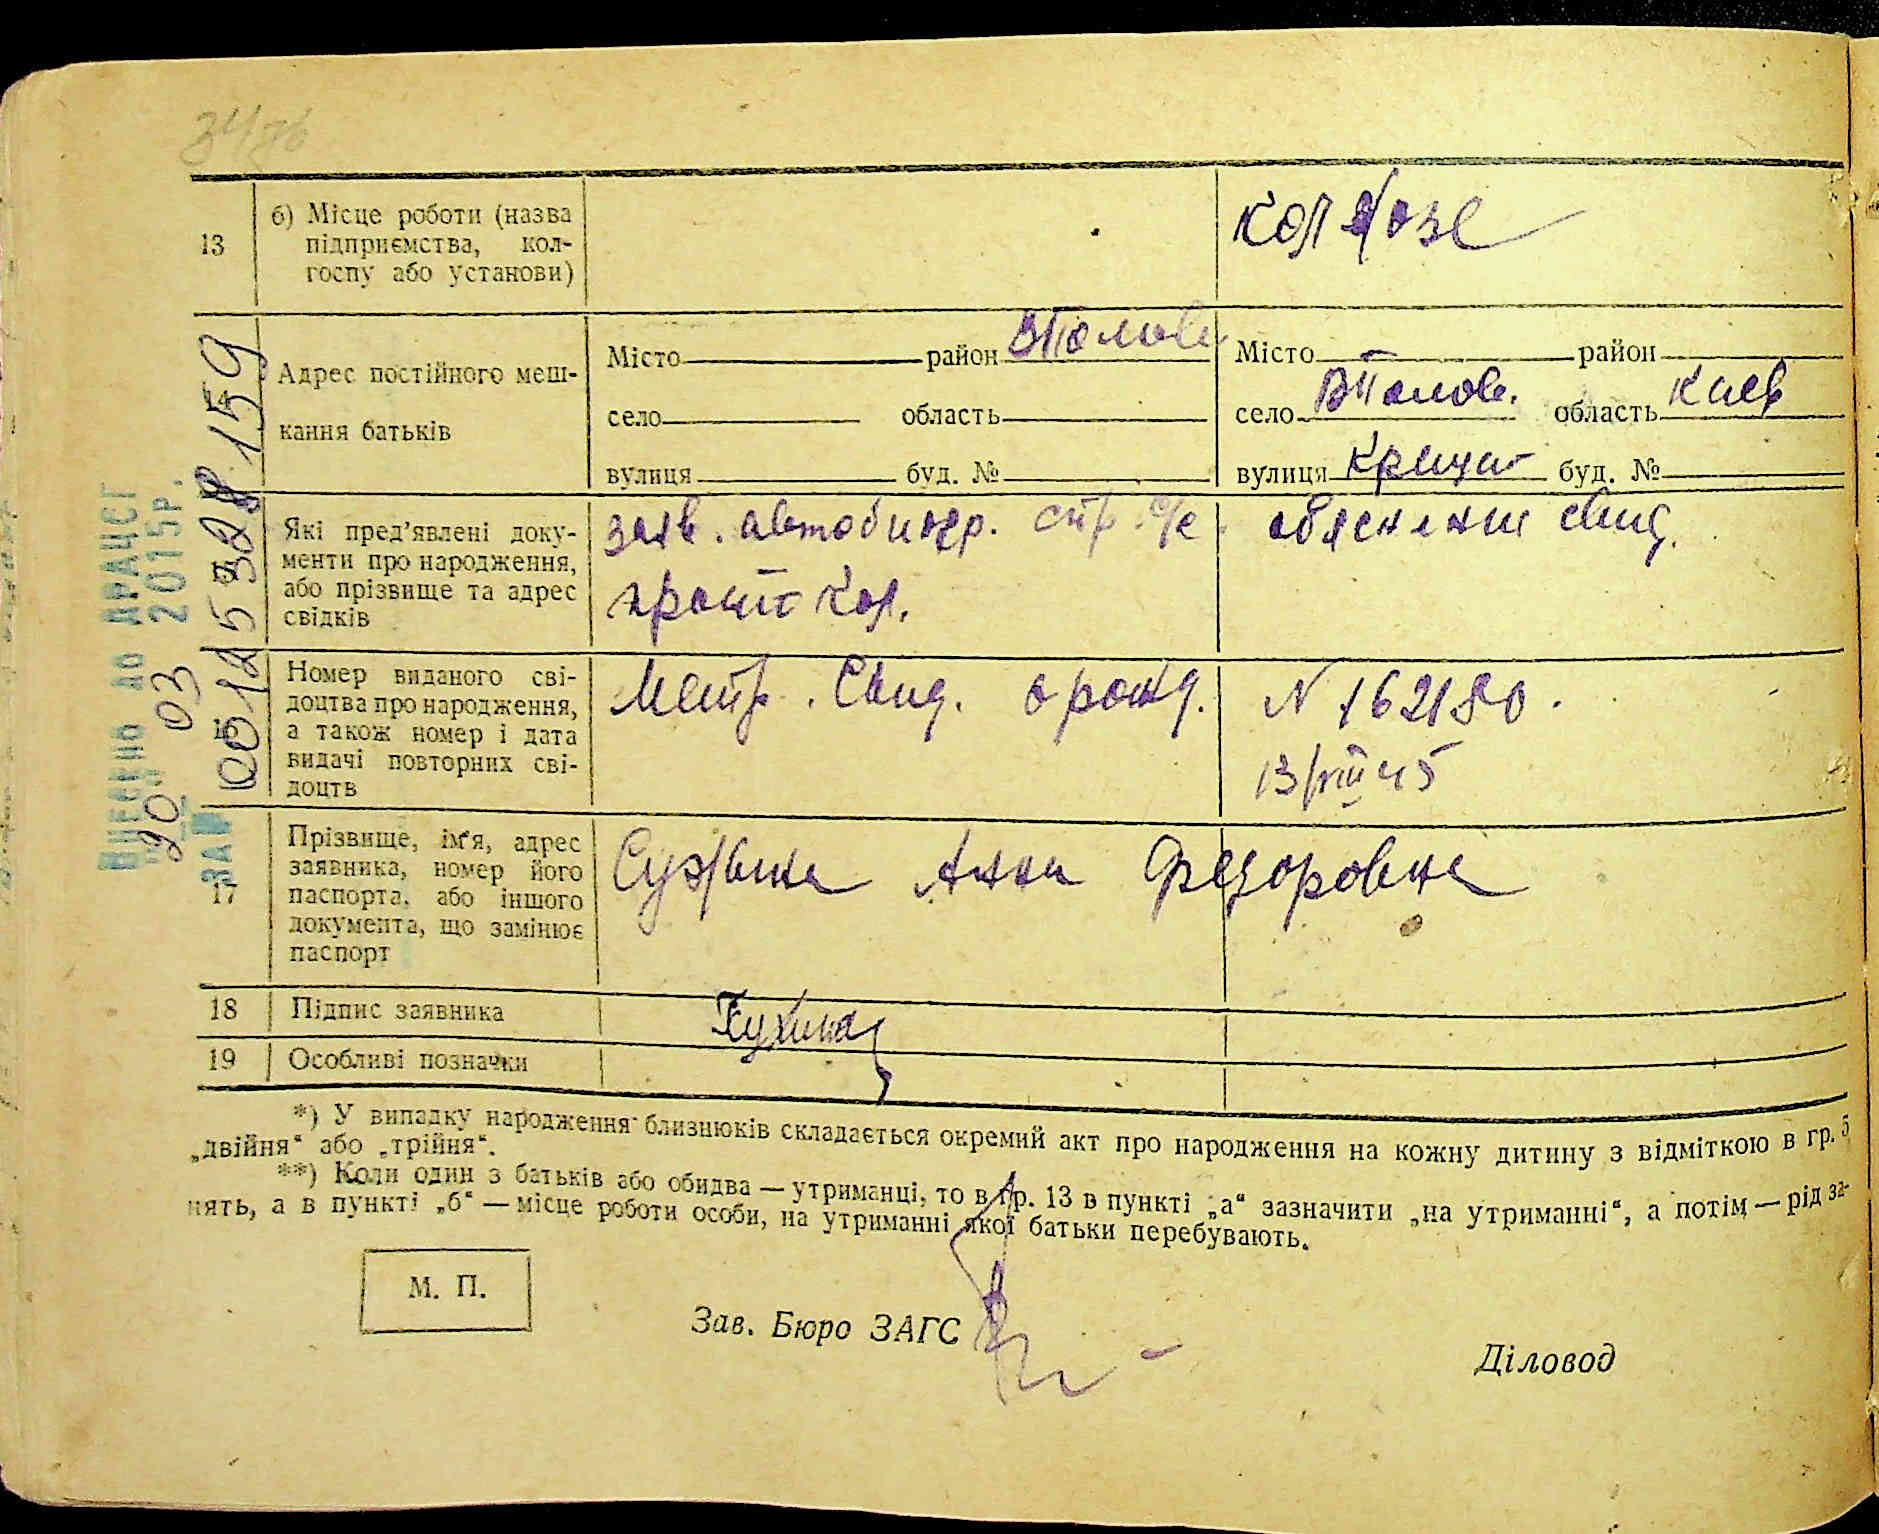 13
б) Місце роботи (назва
підприємства, кол-
госпу або установи)
колхозе
Адрес постійного меш-
кання батьків
Місто район
село область
вулиця буд. №
Місто район
село область Киев
вулиця буд. №
Які пред'явлені доку-
менти про народження,
або прізвище та адрес
свідків
заяв. автобиогр.
свид.
Номер виданого сві-
доцтва про народження,
а також номер і дата
видачі повторних сві-
доцтв
Метр. Свид. о рожд.
N 162180.
13/VIII 45
17
Прізвище, ім'я, адрес
заявника, номер його
паспорта, або іншого
документа, що замінює
паспорт
Анна Федоровна
18 Підпис заявника
19 Особливі позначки
*) У випадку народження близнюків складається окремий акт про народження на кожну дитину з відміткою в гр. 5
„двійня“ або „трійня“.
**) Коли один з батьків або обидва — утриманці, то в гр. 13 в пункті „а“ зазначити „на утриманні“, а потім — рід за-
нять, а в пункті „б“ — місце роботи особи, на утриманні якої батьки перебувають.
М. П.
Зав. Бюро ЗАГС
Діловод
Внесено до ДРАЦСГ
"20" 03 2015р.
ЗА №